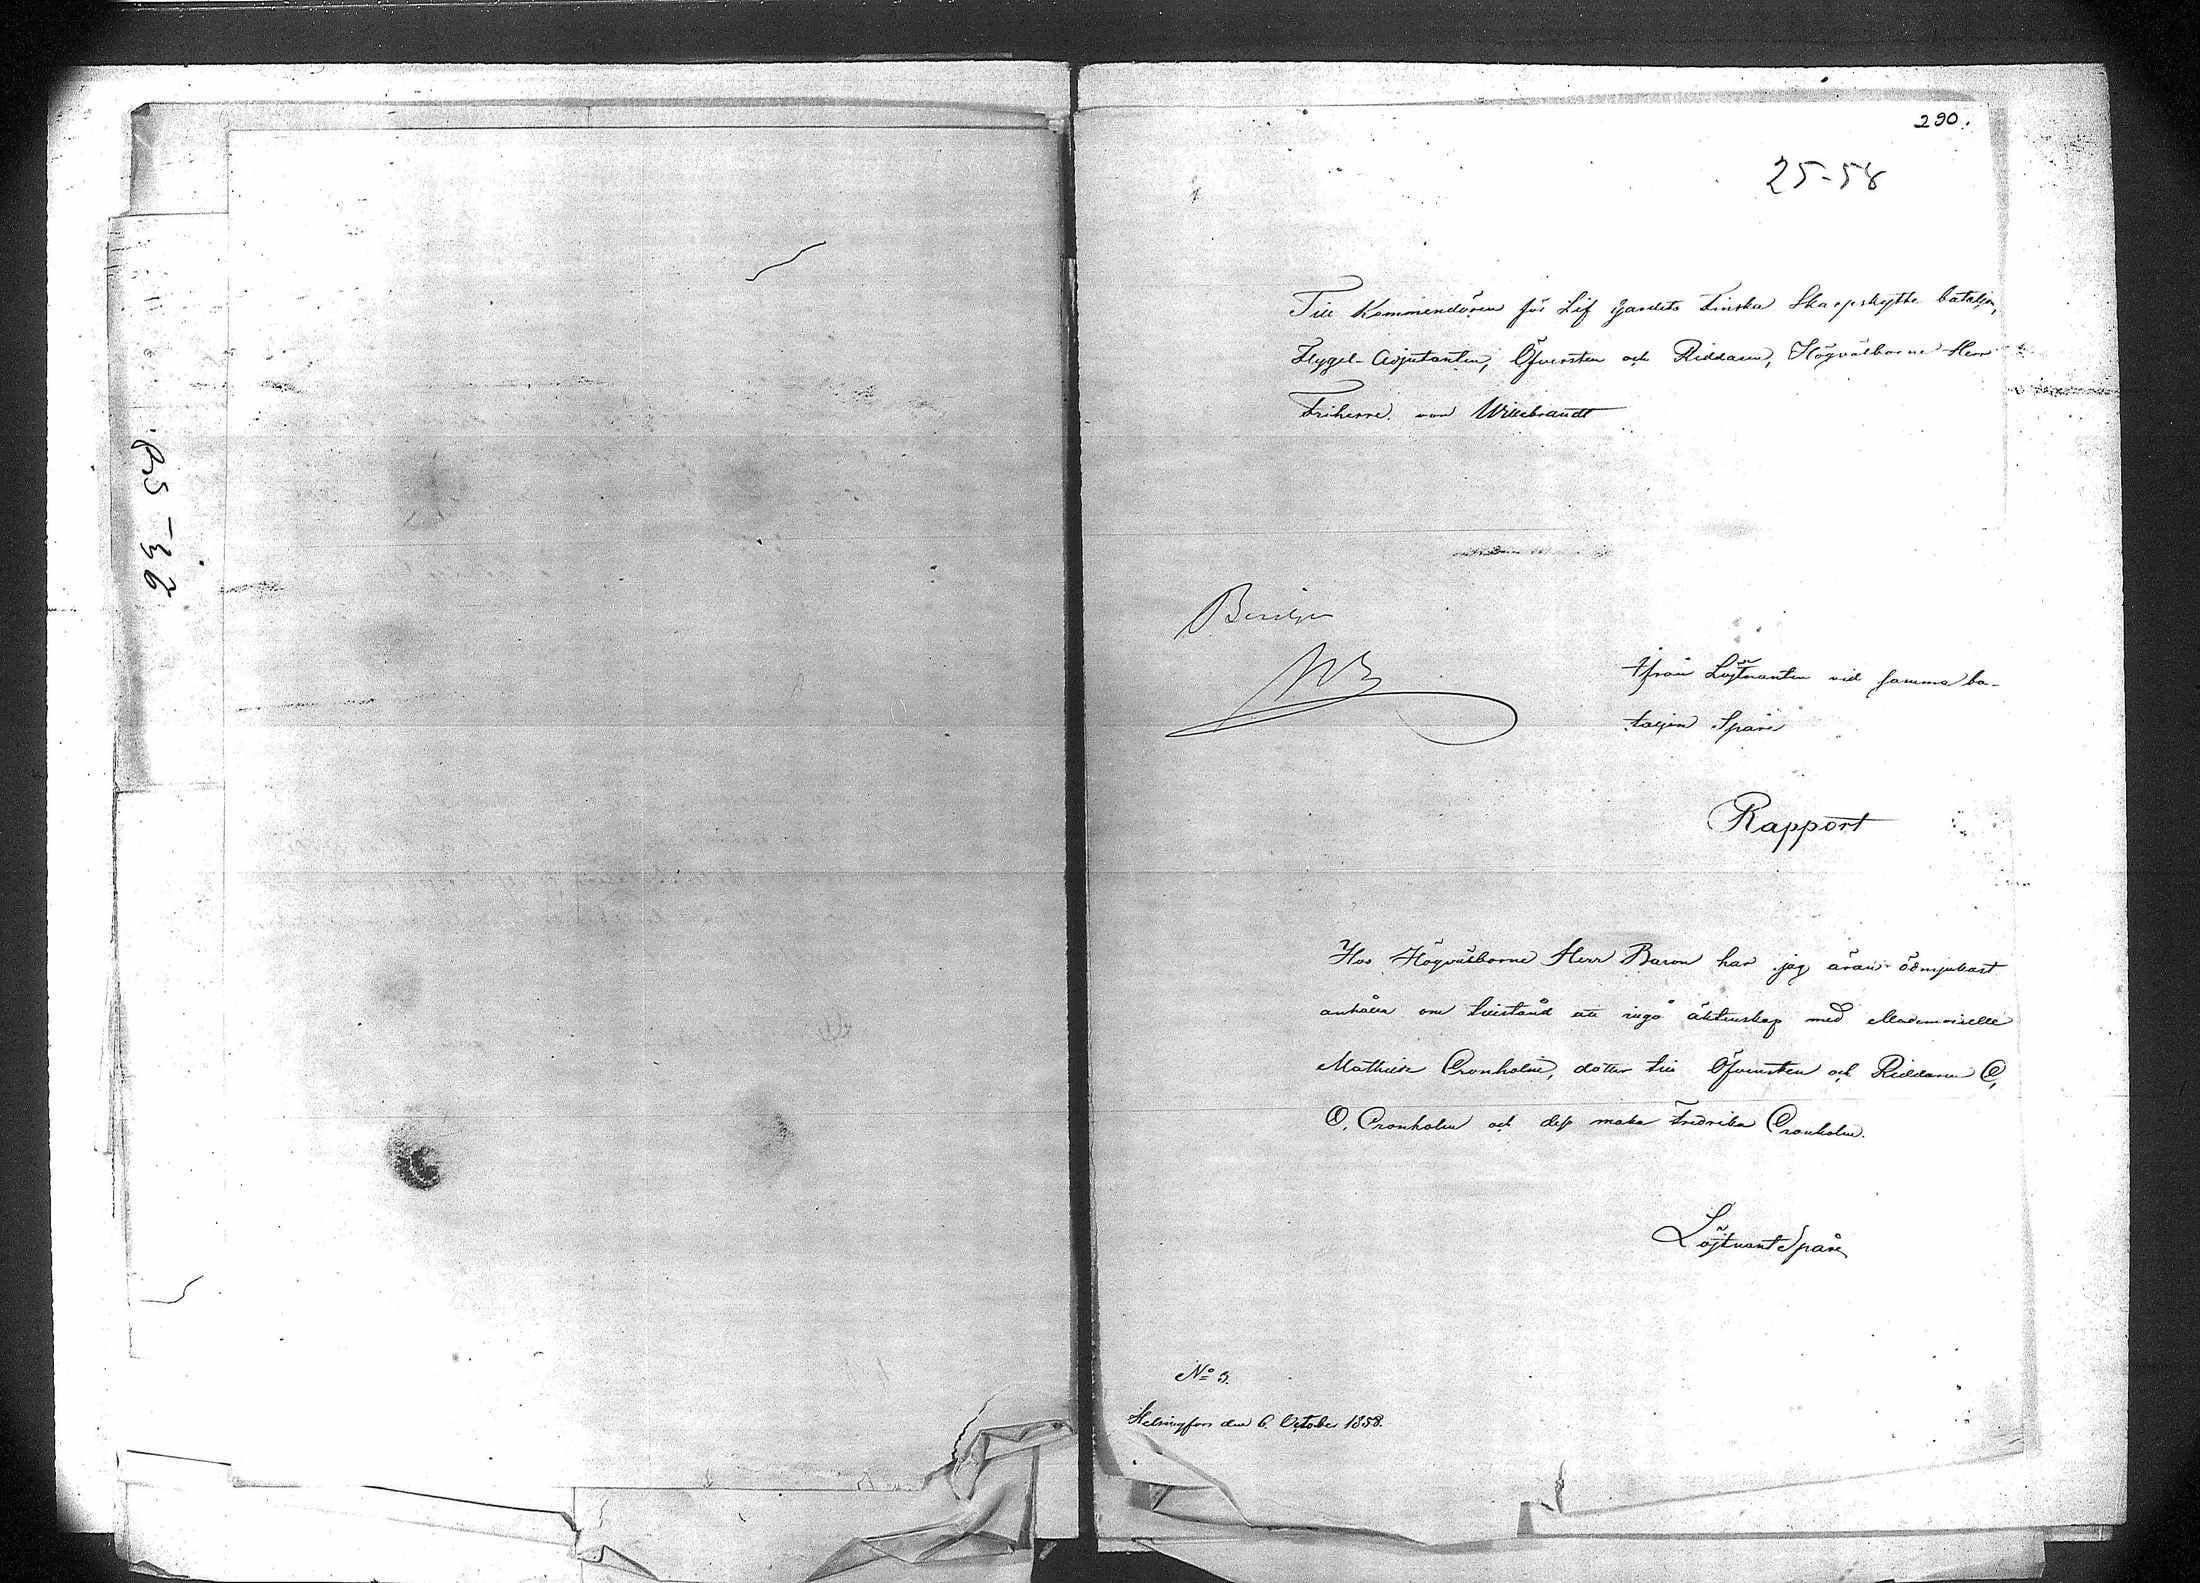 290.
25-58
Till Kommendören för Lif Gardets Finska Skarpskytte bataljon,
Flygel-Adjutanten, Öfversten och Riddaren, Högvälborne Herr
Friherre von Willebrandt
Beviljas
WB
Ifrån Löjtnanten vid samma ba-
taljon Spåre
Rapport
Hos Högvälborne Herr Baron har jag äran ödmjukast
anhålla om tillstånd att ingå äktenskap med Mademoiselle
Mathilda Cronholm, dotter till Öfversten och Riddaren O,
O, Cronholm och dess maka Fredrika Cronholm.
Löjtnant Spåre
No 3.
Helsingfors den 6 October 1858.